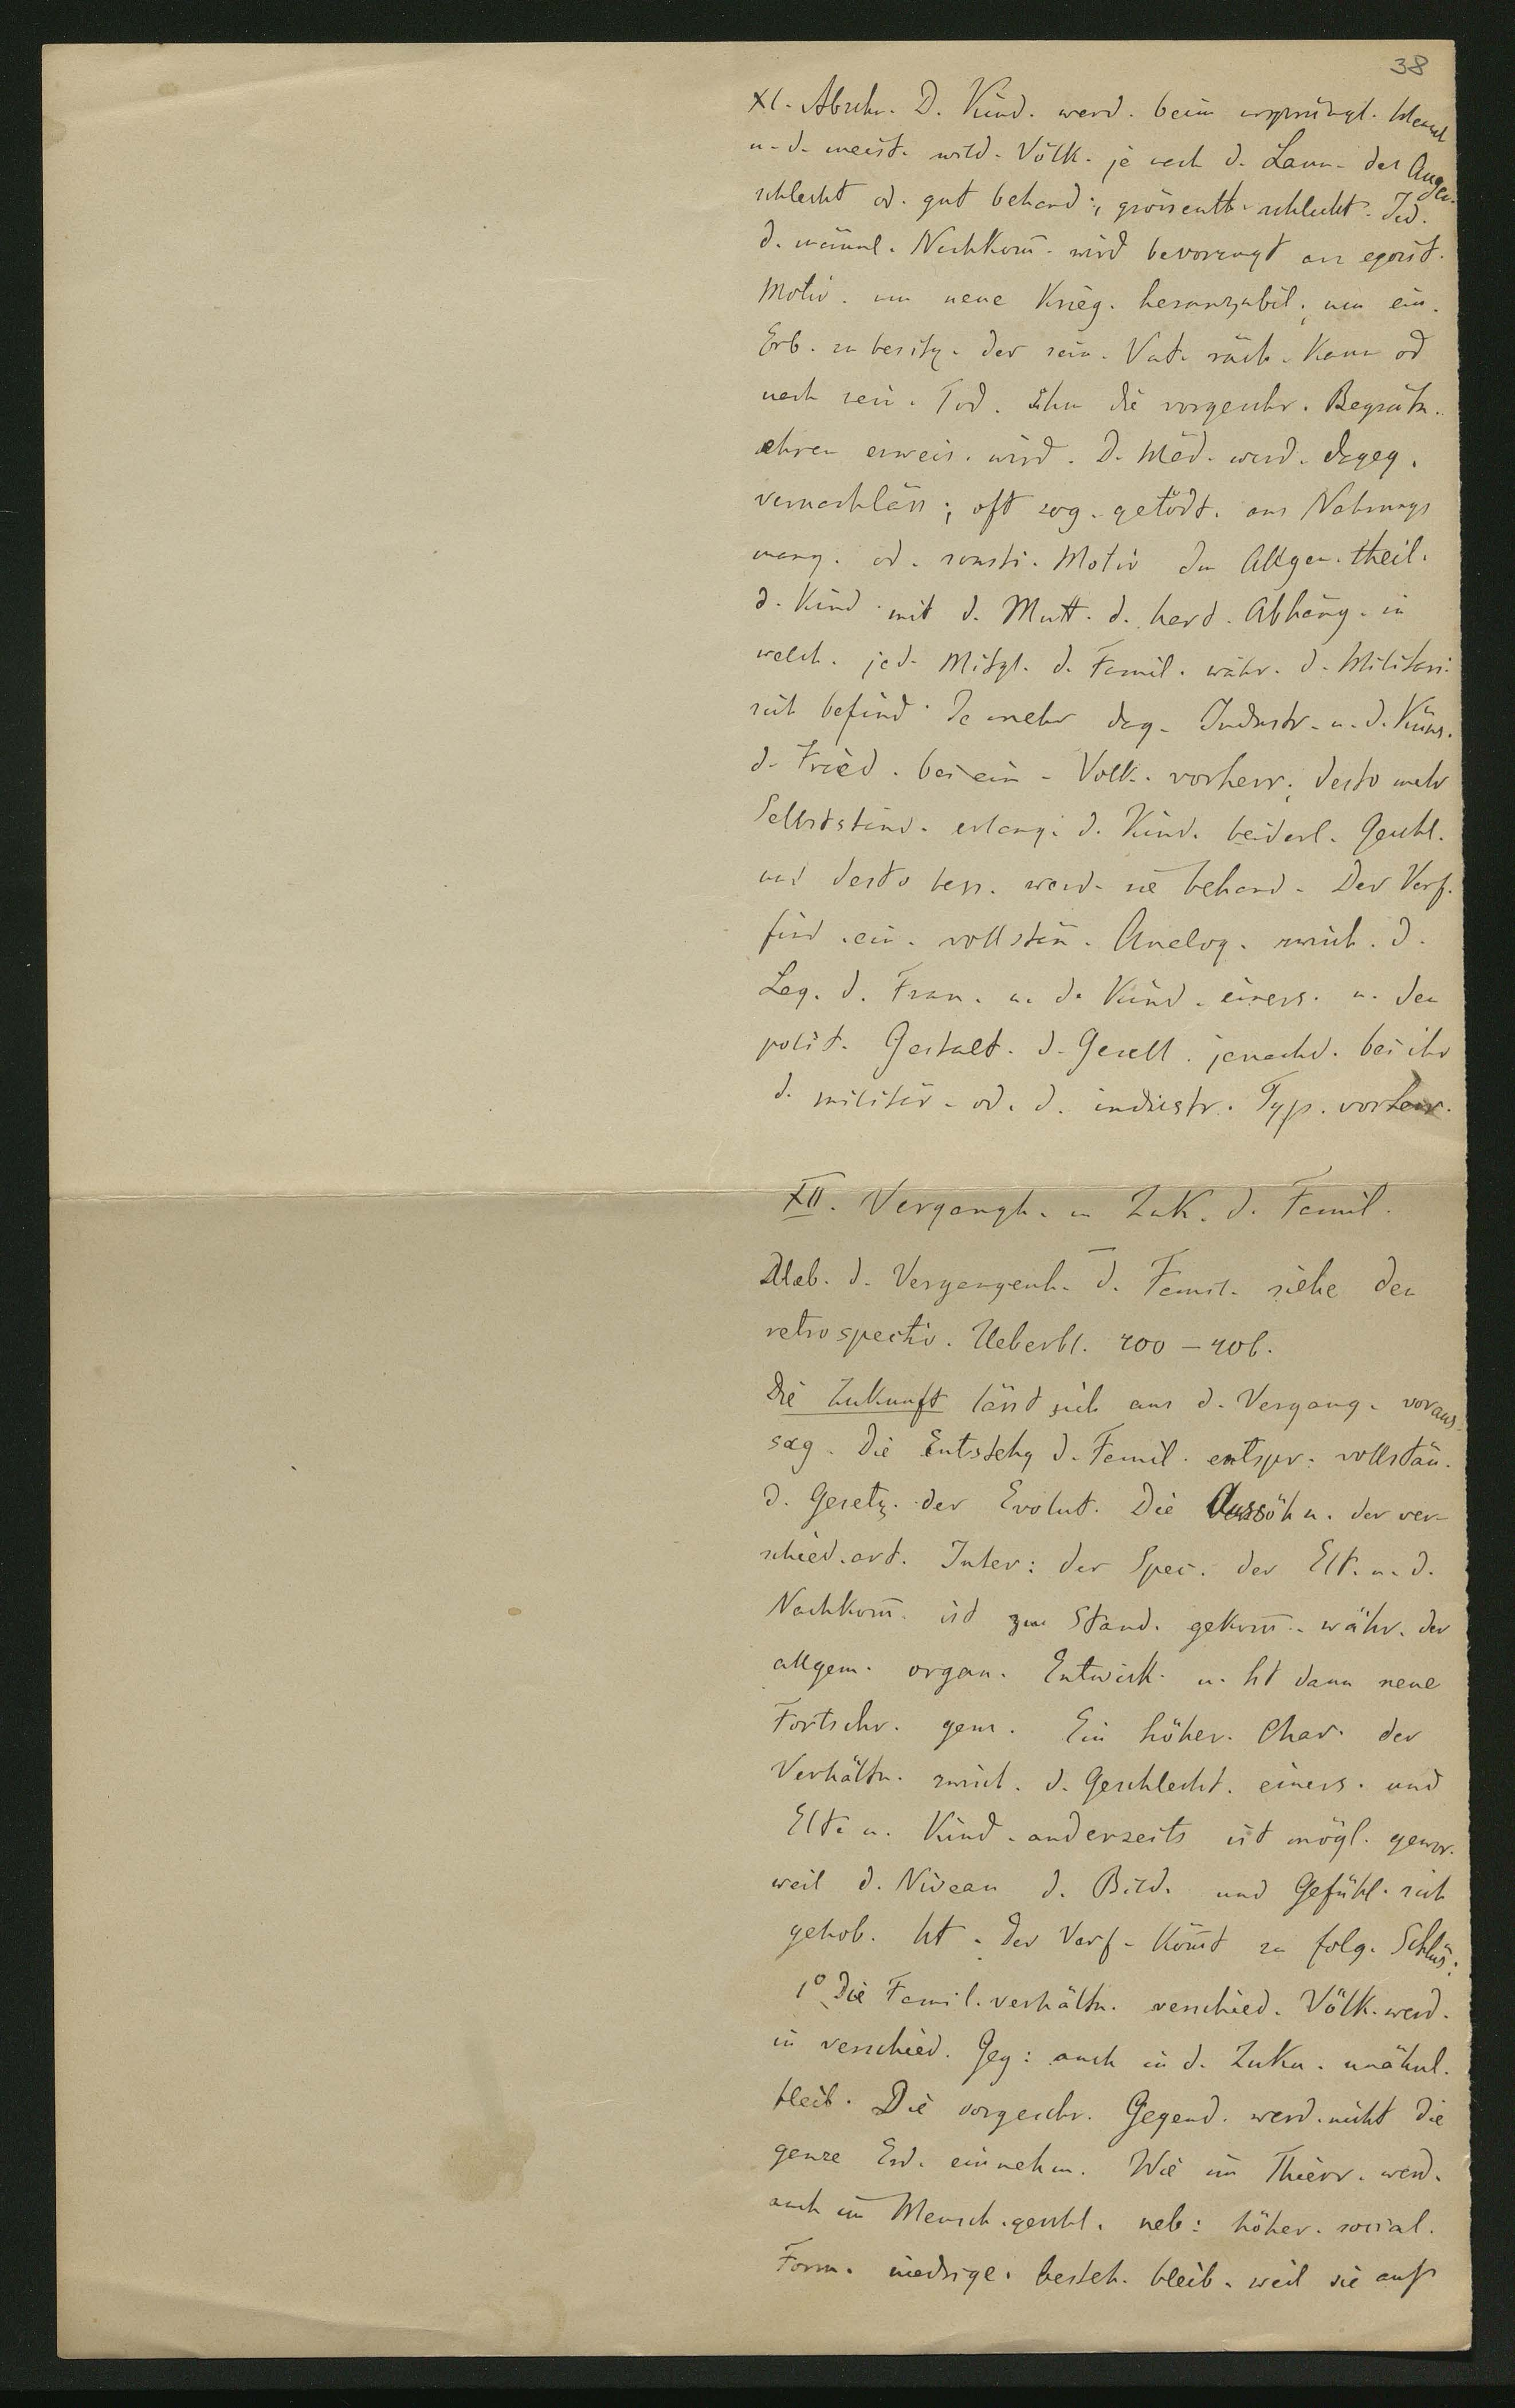 38
XI. Abschn. D. Kind. werd. beim ursprüngl. Mensch
u. d. meist. wild. Völk. je nach d. Laun. des Augen.
schlecht od. gut behand:, grössenth. schlecht. Jed.
d. männl. Nachkom̄. wird bevorzugt aus egoist.
Motiv. um neue Krieg. heranzubil., um ein.
Erb. zu besitz. der sein. Vat. räch. kann od
nach sein. Tod. ihm die vorgeschr. Begräbn.
ehren erweis. wird. D. Mäd. werd. dageg.
vernachläss:, oft sog. getödt. aus Nahrungs
mang. od. sonsti. Motiv Im Allgem. theil.
d. Kind. mit d. Mutt. d. hart. Abhäng. in
welch. jed. Mitgl. d. Famil. währ. d. Militari.
sich befind. Je mehr dag. Industr. u. d. Küns.
d. Fried. bei ein. Volk. vorherr., desto mehr
Selbstständ. erlang. d. Kind. beiderl. Geschl.
und desto bess. werd. sie behand. Der Verf.
find. ein. vollstän. Analog. zwisch. d.
Lag. d. Frau. u. d. Kind. einers. u. der
polit. Gestalt. d. Gesell. jenachd. bei ihr
d. militär. od. d. industr. Typ. vorherr.
XII. Vergangh. u Zuk. d. Famil.
Ueb. d. Vergangenh. d. Famil. siehe den
retrospectiv. Ueberbl. 400 – 406.
Die Zukunft lässt sich aus d. Vergang. voraus
sag. Die Entstehg d. Famil. entspr. vollstän.
d. Gesetz. der Evolut. Die Aussöhn. der ver-
schied.art. Inter: der Spec. der Elt. u. d.
Nachkom̄. ist zu Stand. gekom̄. währ. der
allgem. organ. Entwick. u. ht dann neue
Fortschr. gem. Ein höher. Char. der
Verhältn. zwisch. d. Geschlecht. einers. und
Elt. u. Kind. anderseits ist mögl. gewor.
weil d. Niveau d. Bild. und Gefühl. sich
gehob. ht. Der Verf. kom̄t zu folg. Schlüs:
1° Die Famil.verhältn. verschied. Völk. werd.
in verschied. Geg: auch in d. Zuku. unähnl.
bleib. Die vorgeschr. Gegend. werd. nicht die
ganze Erd. einnehm. Wie im Thierr. werd.
auch im Mensch.geschl. neb: höher. social.
Form. niedrige. besteh. bleib. weil sie auf